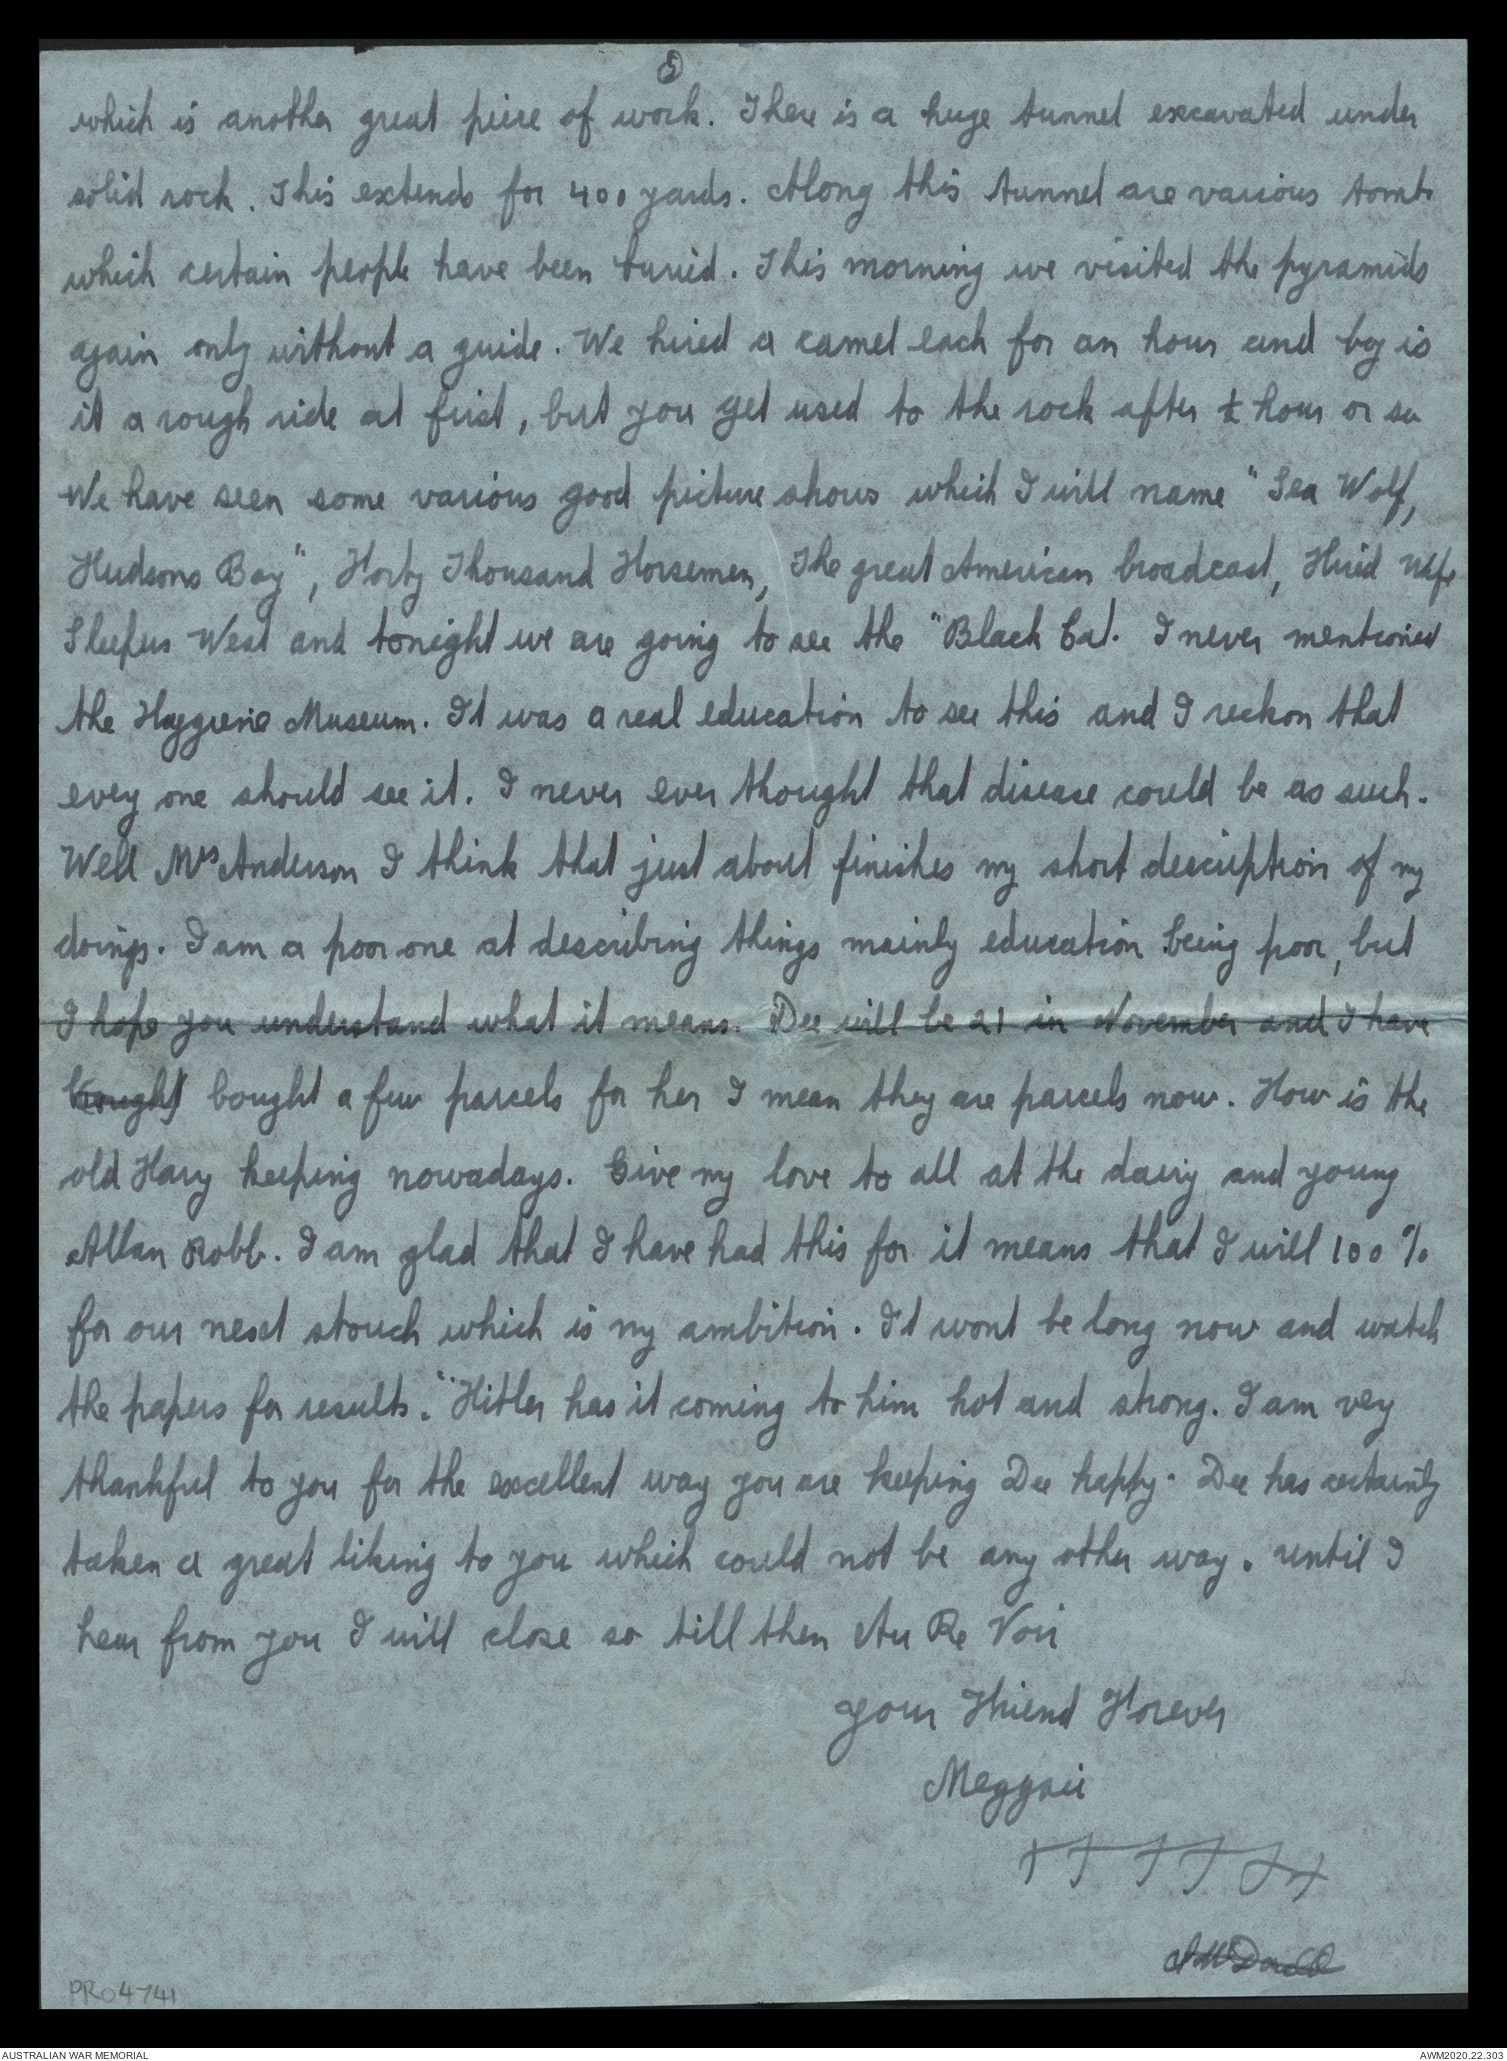 5
which is another great piece of work. There is a huge tunnel excavated under
solid rock. This extends for 400 yards. Along this tunnel are various tombs
which certain people have been buried. This morning we visited the pyramids
again only without a guide. We hired a camel each for an hour and boy is
it a rough ride at first, but you get used to the rock after ½ hour or so
We have seen some various good picture shows which I will name "Sea Wolf,
Hudsons Bay", Forty Thousand Horsemen, The great American broadcast, Hired Wife
Sleepers West and tonight we are going to see the "Black Cat. I never mentioned
the Hygeine Museum. It was a real education to see this and I reckon that
every one should see it. I never ever thought that disease could be as such.
Well Mrs Anderson I think that just about finishes my short description of my
doings. I am a poor one at describing things mainly education being poor, but
I hope you understand what it means. Dee will be 21 in November and I have
bought bought a few parcels for her I mean they are parcels now. How is the
old Harry keeping nowadays. Give my love to all at the dairy and young
Allan Robb. I am glad that I have had this for it means that I will 100%
for our next stouch which is my ambition. It wont be long now and watch
the papers for results." Hitler has it coming to him hot and strong. I am very
thankful to you for the excellent way you are keeping Dee happy. Dee has certainly
taken a great liking to you which could not be any other way. until I
hear from you I will close so till then Au Re Voir
your Friend Forever
Meggsie
PR04741
AUSTRALIAN WAR MEMORIAL
AWM2020.22.303